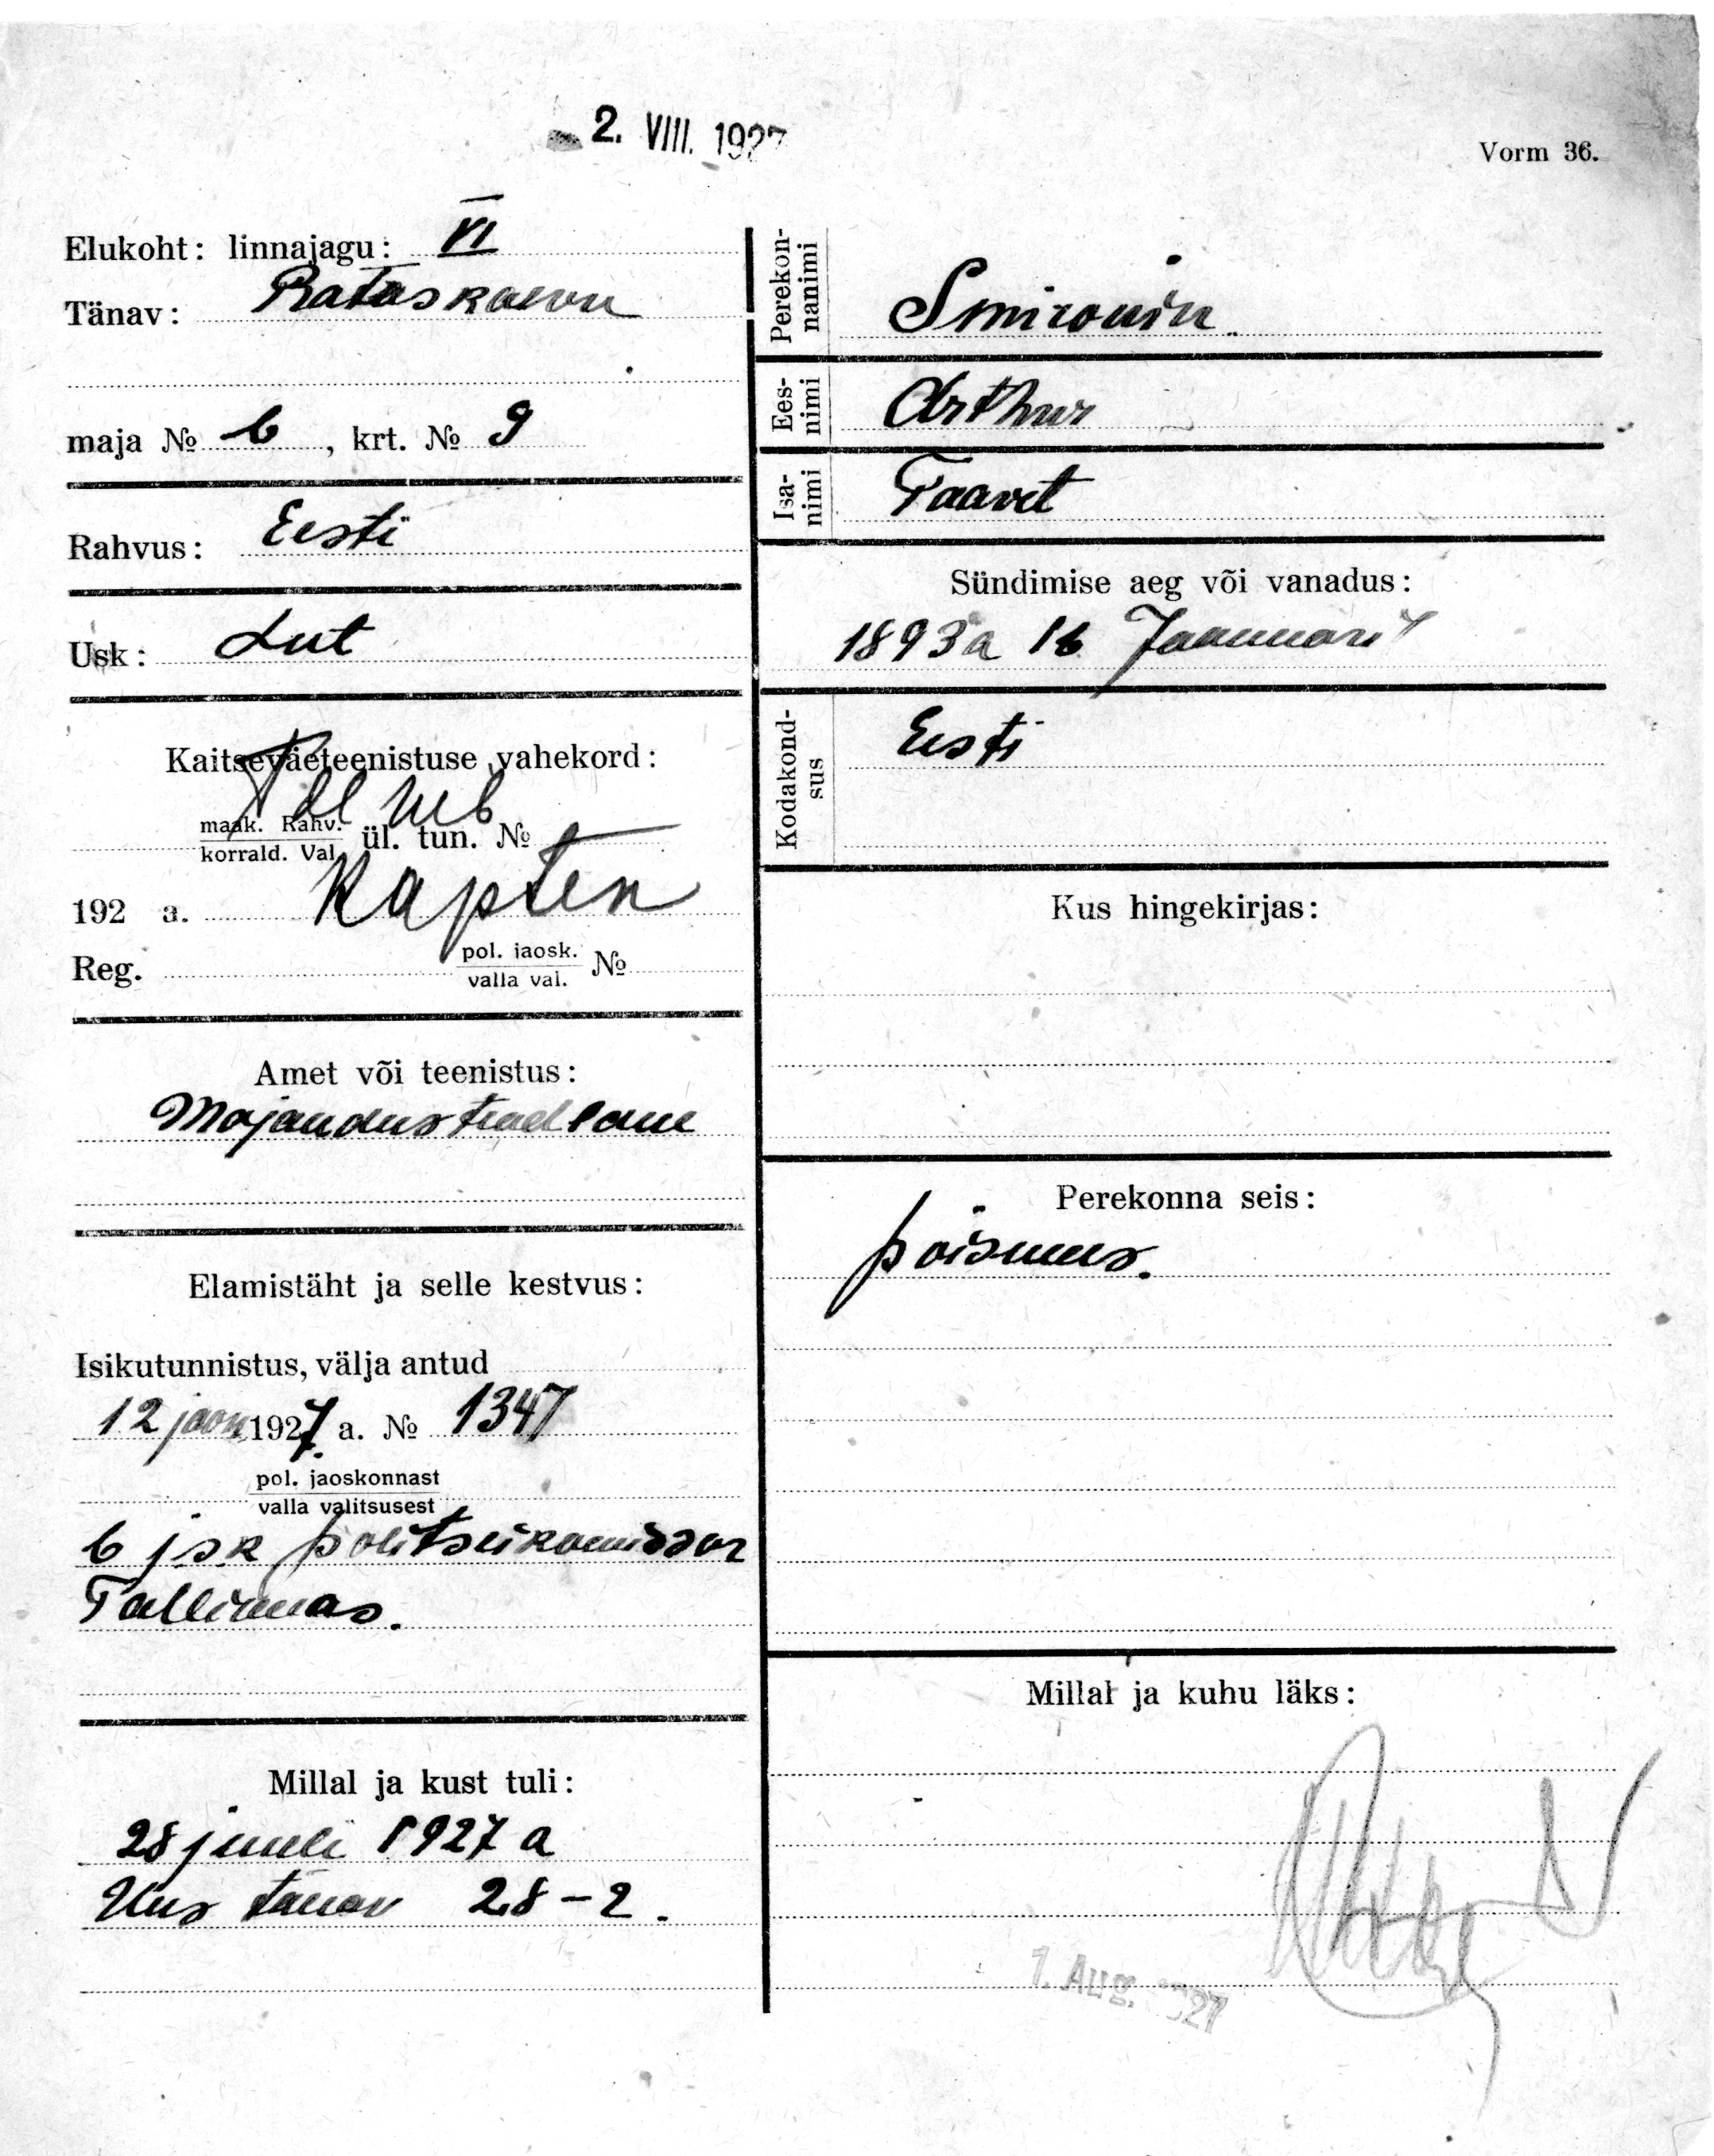 2. VIII. 1927
Vorm 36.
Elukoht: linnajagu: VI
Tänav: Rataskaevu
maja № 6, krt. № 9
Rahvus: Eesti
Usk: Lut
Kaitseväeteenistuse vahekord:
maak. Rahv.
korrald. Val. ül. tun. №
192 a. Kapten
Reg. pol. jaosk.
valla val. №
Amet või teenistus:
Majandusteadlane
Elamistäht ja selle kestvus:
Isikutunnistus, välja antud
12 jaan 1927. a. № 1347
pol. jaoskonnast
valla valitsusest
6 jsk politseikomissar
Tallinnas.
Millal ja kust tuli:
28 juuli 1927 a
Uus tänav 28-2.
Perekon-
nanimi
Smironin.
Ees-
nimi
Arthur
Isa-
nimi
Taavet
Sündimise aeg või vanadus:
1893 a 16 Jaanuaril
Kodakond-
sus
Eesti
Kus hingekirjas:
Perekonna seis:
poismees.
Millal ja kuhu läks:
1. Aug. 1927